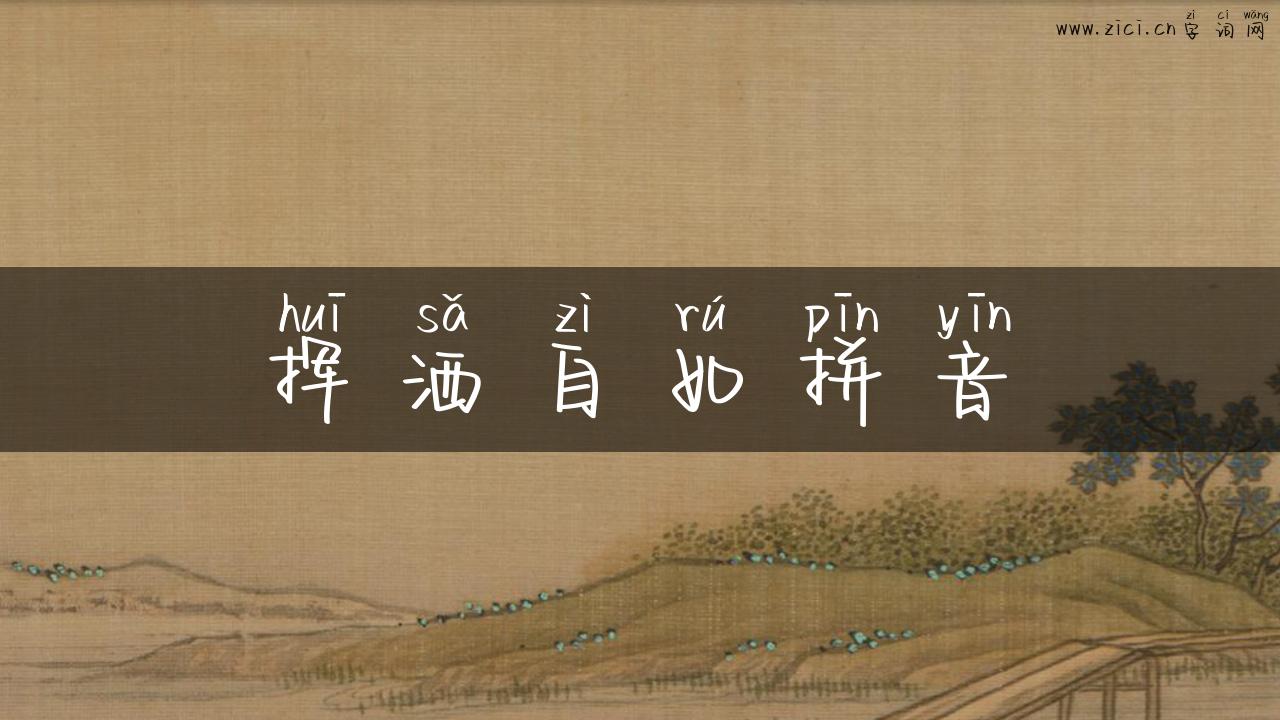 zì cí wǎng
www.zici.cn字词网
huī sǎ zì rú pīn yīn
挥洒自如拼音